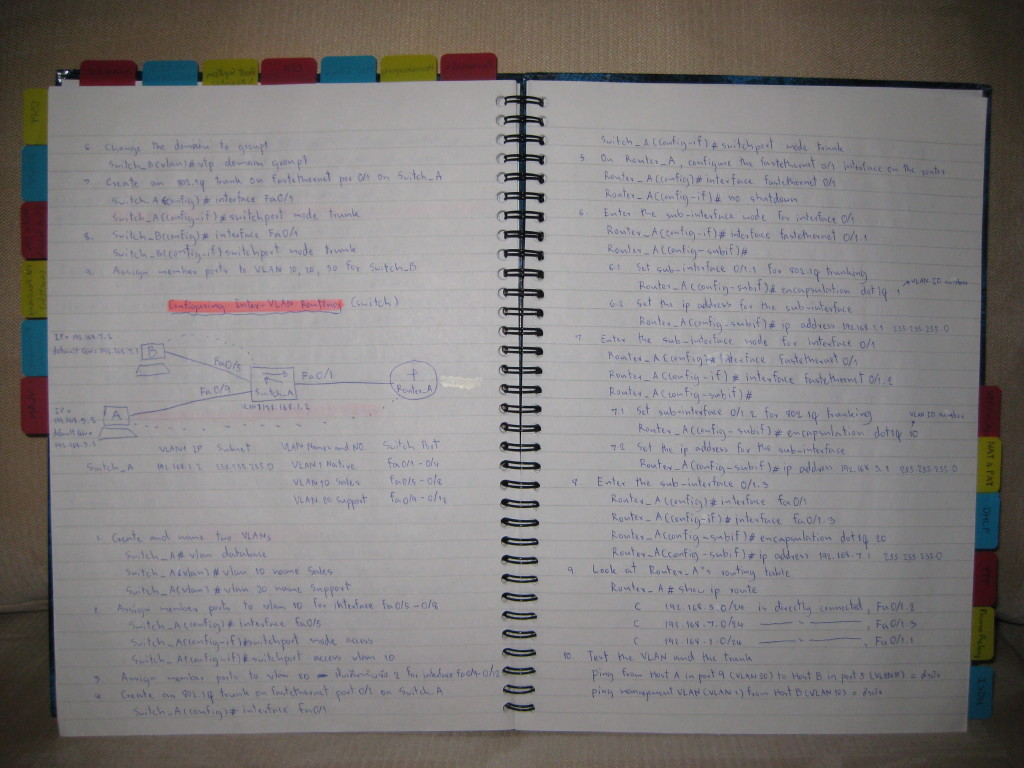 6. Change the domain to group1
Switch_B(vlan)# vtp domain group1
7. Create an 802.1q trunk on fastethernet por 0/1 on Switch_A
Switch_A(config)# interface Fa0/1
Switch_A(config-if)# switchport mode trunk
8. Switch_B(config)# interface Fa0/1
Switch_B(config-if) switchport mode trunk
9. Assign member ports to VLAN 10, 20, 30 for Switch_B
Configuring Inter-VLAN Routing (switch)
B
Fa0/5
Fa0/9
Fa0/1
Switch_A
Router_A
A
VLAN1 IP Subnet VLAN Names and NO. Switch Port
Switch_A 192.168.1.2 255.255.255.0 VLAN 1 Native fa0/1 - 0/4
VLAN 10 Sales fa0/5 - 0/8
VLAN 20 Support fa0/9 - 0/12
1. Create and name two VLANs
Switch_A# vlan database
Switch_A(vlan)# vlan 10 name Sales
Switch_A(vlan)# vlan 20 name Support
2. Assign member ports to vlan 10 for interface Fa0/5 - 0/8
Switch_A(config)# interface fa0/5
Switch_A(config-if)#switchport mode access
Switch_A(config-if)# switchport access vlan 10
3. Assign member ports to vlan 20 for interface fa0/9-0/12
4. Create an 802.1q trunk on Fastethernet port 0/1 on Switch_A
Switch_A(config)# interface Fa0/1
Switch_A(config-if)# switchport mode trunk
5. On Router_A, configure the fastethernet 0/1 interface on the router
Router_A(config)# interface fastethernet 0/1
Router_A(config-if)# no shutdown
6. Enter the sub-interface mode for interface 0/1
Router_A(config-if)# interface fastethernet 0/1.1
Router_A(config-subif)#
6.1 Set sub-interface 0/1.1 for 802.1q trunking
Router_A(config-subif)# encapsulation dot1q 1
VLAN ID number
6.2 Set the ip address for the sub-interface
Router_A(config-subif)# ip address 192.168.1.1 255.255.255.0
7. Enter the sub-interface mode for interface 0/1
Router_A(config)# interface fastethernet 0/1
Router_A(config-if)# interface fastethernet 0/1.2
Router_A(config-subif)#
7.1 Set sub-interface 0/1.2 for 802.1q trunking
VLAN ID number
Router_A(config-subif)# encapsulation dot1q 10
7.2 Set the ip address for the sub-interface
Router_A(config-subif)# ip address 192.168.5.1 255.255.255.0
8. Enter the sub-interface 0/1.3
Router_A(config)# interface fa0/1
Router_A(config-if)# interface fa0/1.3
Router_A(config-subif)# encapsulation dot1q 20
Router_A(config-subif)# ip address 192.168.7.1 255.255.255.0
9. Look at Router_A's routing table
Router_A# show ip route
C 192.168.5.0/24 is directly connected, Fa0/1.2
C 192.168.7.0/24 , Fa0/1.3
C 192.168.1.0/24 , Fa0/1.1
10. Test the VLAN and the trunk
ping from Host A in port 9 (VLAN 20) to Host B in port 5 (VLAN10) =
ping management VLAN (VLAN 1) from Host B (VLAN 10) =
NAT & PAT
DHCP
ISDN